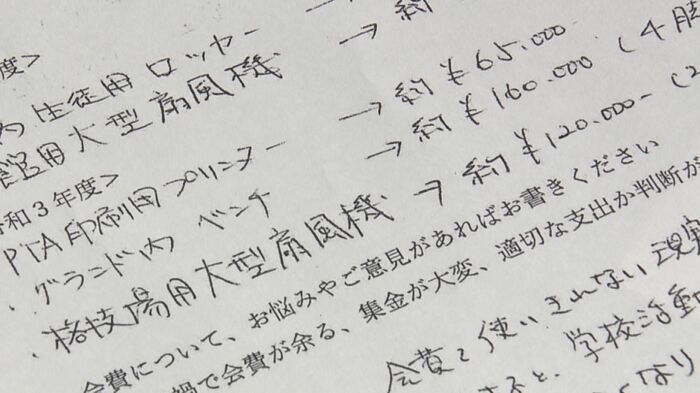 度>
生徒用ロッカー →
用大型扇風機 → 約
和3年度>
PTA印刷用プリンター → 約¥65.000
・グランド内 ベンチ → 約¥160.000 (4脚
・格技場用大型扇風機 → 約¥120.000- (2
会費について、お悩みやご意見があればお書きください
で会費が余る、集金が大変、適切な支出か判断が
会費を使いきれない現
と、学校活動
なり